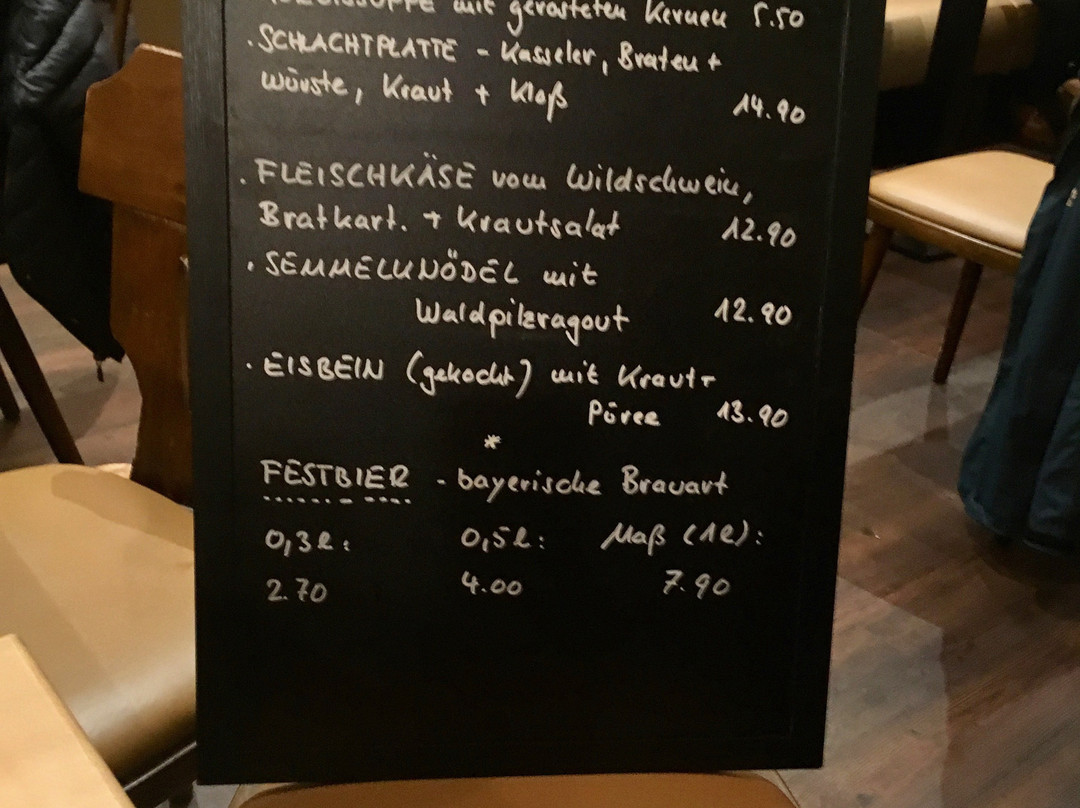 mit gerösteten Kernen 5.50
. SCHLACHTPLATTE - Kasseler, Braten +
Würste, Kraut + Kloß
14.90
. FLEISCHKÄSE vom Wildschwein,
Bratkart. + Krautsalat 12.90
. SEMMELKNÖDEL mit
Waldpilzragout 12.90
. EISBEIN (gekocht) mit Kraut +
Püree 13.90
*
FESTBIER - bayerische Brauart
0,3l: 0,5l: Maß (1l):
2.70 4.00 7.90